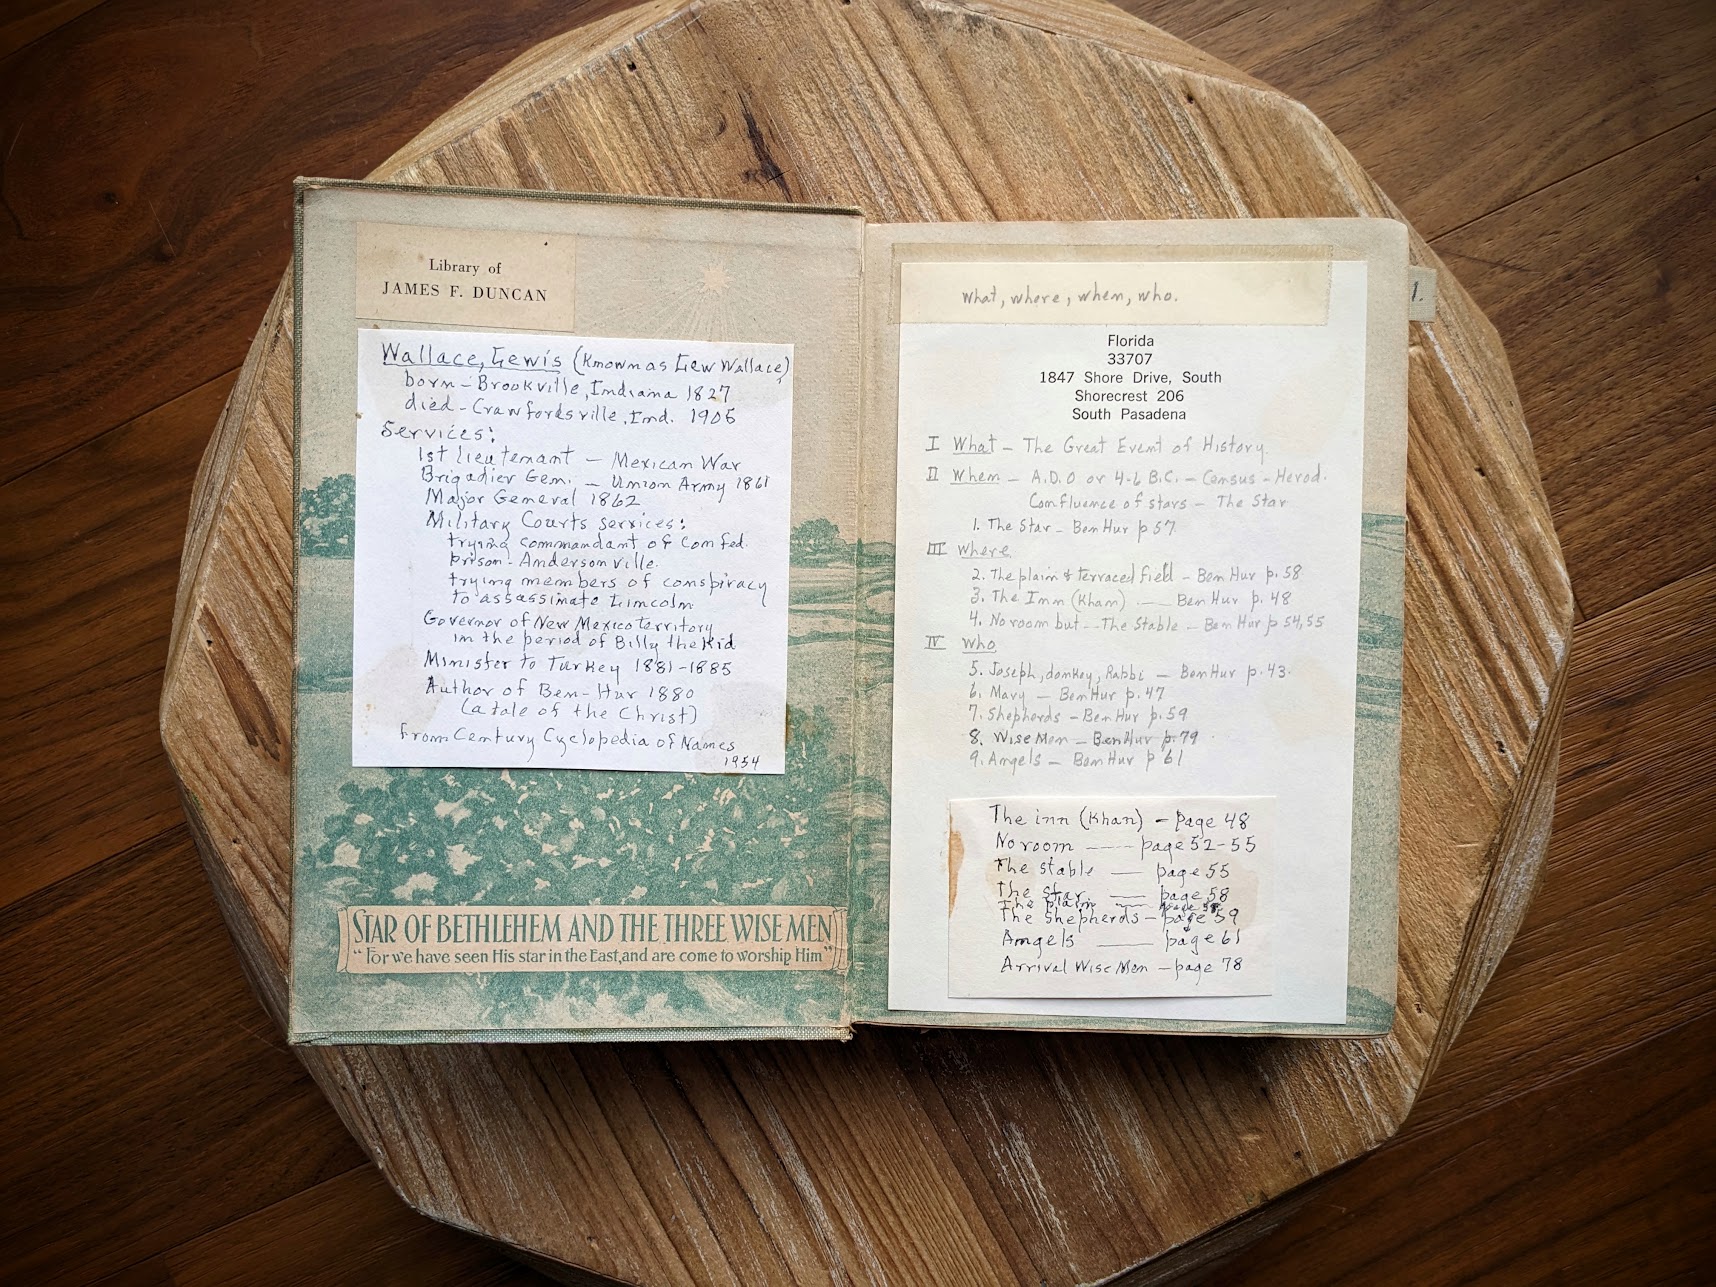 Library of
JAMES F. DUNCAN
Wallace, Lewis (Known as Lew Wallace)
born - Brookville, Indiana 1827
died - Crawfordsville, Ind. 1905
Services:
1st lieutenant - Mexican War
Brigadier Gen. - Union Army 1861
Major General 1862
Military Courts services:
trying commandant of Confed.
prison - Andersonville.
trying members of conspiracy
to assassinate Lincoln
Governor of New Mexico territory
in the period of Billy the Kid
Minister to Turkey 1881-1885
Author of Ben-Hur 1880
(a tale of the Christ)
from Century Cyclopedia of Names
1954
STAR OF BETHLEHEM AND THE THREE WISE MEN
"For we have seen His star in the East, and are come to worship Him"
what, where, when, who.
1.
Florida
33707
1847 Shore Drive, South
Shorecrest 206
South Pasadena
I What - The Great Event of History
II When - A.D.O or 4-6 B.C. - Census - Herod.
Confluence of stars - The Star
1. The Star - Ben Hur p 57
III Where
2. The plain & terraced field - Ben Hur p. 58
3. The Inn (Khan) - Ben Hur p. 48
4. No room but - The Stable - Ben Hur p 54, 55
IV Who
5. Joseph, donkey, Rabbi - Ben Hur p. 43.
6. Mary - Ben Hur p. 47
7. Shepherds - Ben Hur p. 59
8. Wise Men - Ben Hur p. 79
9. Angels - Ben Hur p 61
The inn (Khan) - page 48
No room - page 52-55
The stable - page 55
The star - page 58
The plain - page
The Shepherds - page 59
Angels - page 61
Arrival Wise Men - page 78